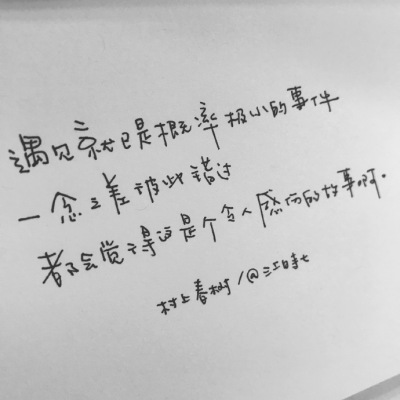 遇见就已是概率极小的事件
一念之差彼此错过
都会觉得这是个令人感伤的故事啊.
村上春树/@江时七